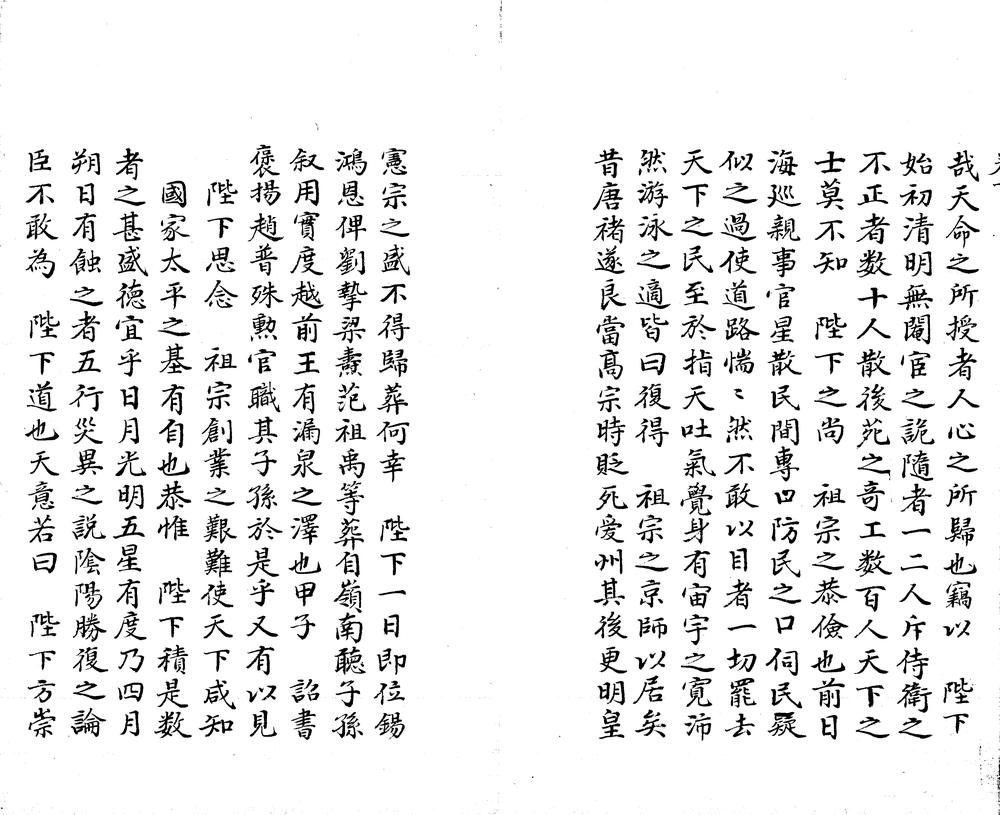 哉天命之所授者人心之所歸也竊以　陛下
始初清明無閹宦之詭隨者一二人斥侍衛之
不正者数十人散後苑之奇工数百人天下之
士莫不知　陛下之尚　祖宗之恭儉也前日
海廵親事官星散民間專口防民之口伺民疑
似之過使道路惴〻然不敢以目者一切罷去
天下之民至於指天吐氣覺身有宙宇之寬沛
然游泳之適皆曰復得　祖宗之京師以居矣
昔唐褚遂良當高宗時貶死爱州其後更明皇
憲宗之盛不得歸葬何幸　陛下一日即位錫
鴻恩俾劉摯梁燾范祖禹等葬自嶺南聽子孫
叙用實度越前王有漏泉之澤也甲子　詔書
褒揚趙普殊勲官職其子孫於是乎又有以見
陛下思念　祖宗創業之艱難使天下咸知
國家太平之基有自也恭惟　陛下積是数
者之甚盛德宜乎日月光明五星有度乃四月
朔日有蝕之者五行災異之説陰陽勝復之論
臣不敢為　陛下道也天意若曰　陛下方崇